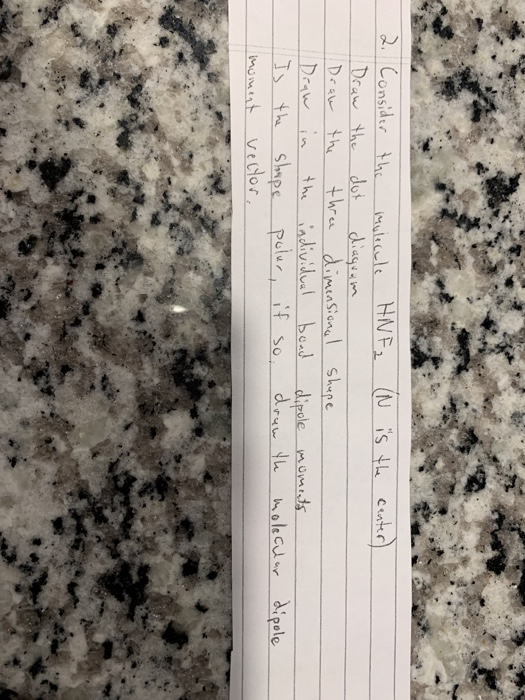 2. Consider the molecule HNF2 (N is the center)
Draw the dot diagram
Draw the three dimensional shape
Draw in the individual bond dipole moments
Is the shape polar, if so, draw the molecular dipole
moment vector.